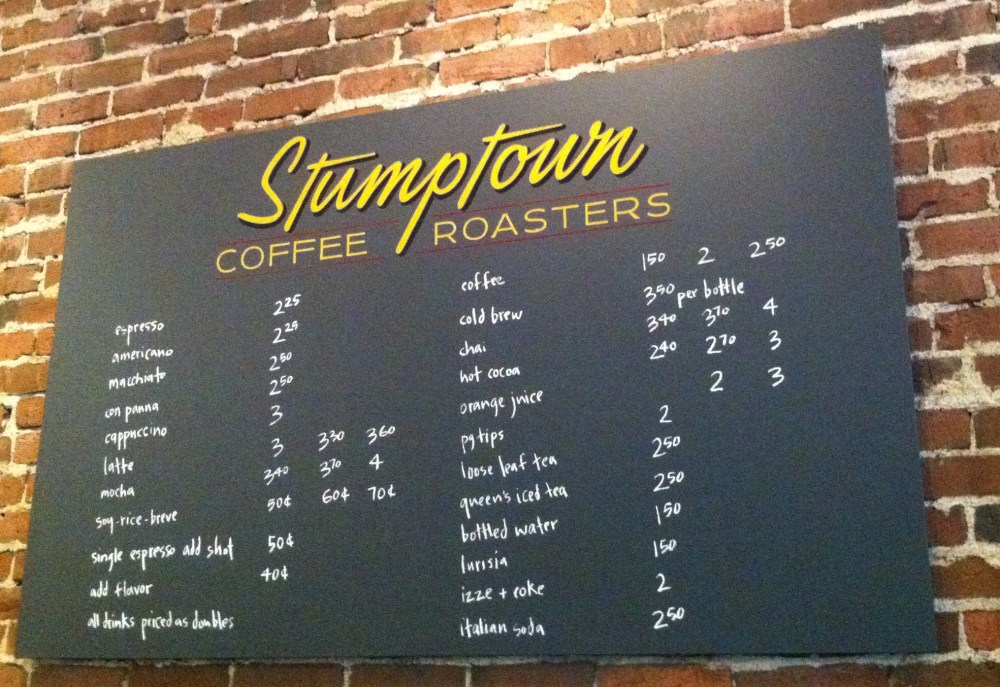 Stumptown
COFFEE ROASTERS
espresso 2 25
americano 2 25
macchiato 2 50
con panna 2 50
cappuccino 3
latte 3 3 30 3 60
mocha 3 40 3 70 4
soy-rice-breve 50¢ 60¢ 70¢
single espresso add shot 50¢
add flavor 40¢
all drinks priced as doubles
coffee 1 50 2 2 50
cold brew 3 50 per bottle
chai 3 40 3 70 4
hot cocoa 2 40 2 70 3
orange juice 2 3
pg tips 2
loose leaf tea 2 50
queen's iced tea 2 50
bottled water 1 50
lurisia 1 50
izze + coke 2
italian soda 2 50